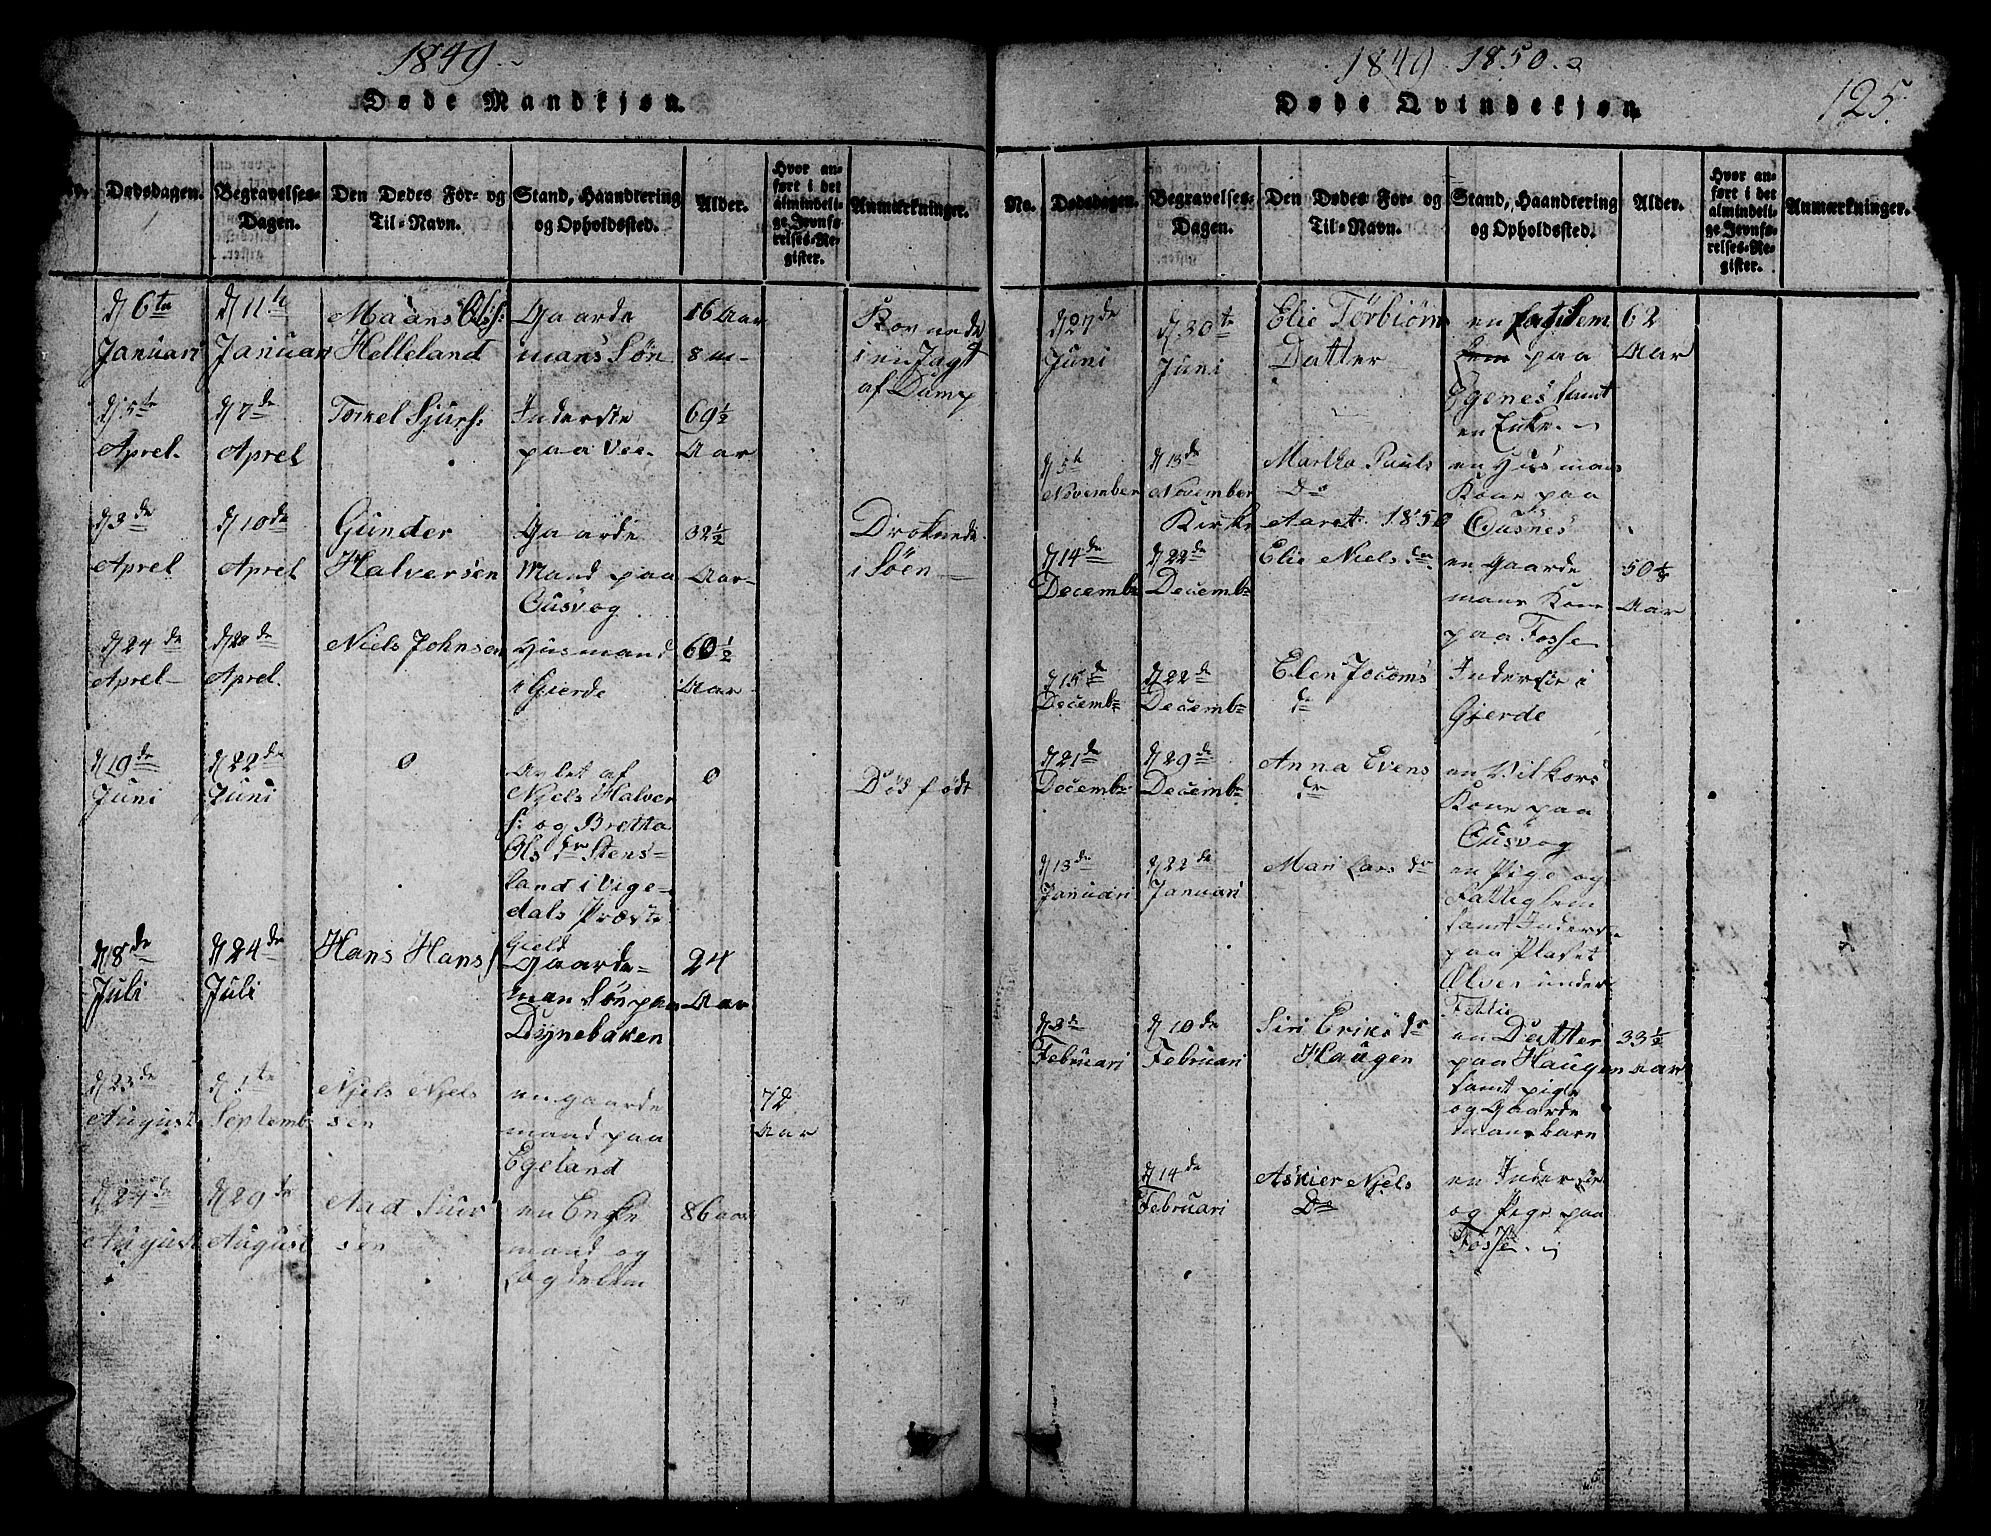 1849
Døde Mandkjøn.
No. Dødsdagen. Begravelses-Dagen. Den Dødes For- og Til-Navn. Stand, Haandtering og Opholdssted. Alder. Hvor anført i det almindelige Jevnførelses-Register. Anmærkninger.
d 6te Januari
d 11te Januari
Maans Ols:
Helleland
Gaarde
mans Søn
16 Aar
8 m
af Damp
d 5te Aprel.
d 7de Aprel
Torkel Sjurs:
Inderste
paa Vee.
69½
Aar
d 3de Aprel
d 10de Aprel
Gunder
Halversen
Gaarde
Mand paa
Cusvog
32½
Aar
Droknede
i Søen
d 24de Aprel
d 28de Aprel.
Niels Johnsen
Husmand
i Gierde
60½
Aar
d 19de Juni
d 22de Juni
0
Avlet af
Njels Halver
s: og Bretta
Ols dr Stens-
land i Vige-
dals Præste
Gield
0
Død født
d 8de Juli
d 24de Juli
Hans Hans
Gaarde-
man Søn paa
Dynebaken
24
Aar
d 23de August
d 1te Septemb
Njels Njels
sen
en gaarde
mand paa
Egeland
72
Aar
d 24de August
d 29de August
Aad Siur
sen
en Enke
mand og
Lægdelem
86 aar
1849 1850
125.
Døde Qvindekjøn
No. Dødsdagen. Begravelses-Dagen. Den Dødes For- og Til-Navn. Stand, Haandtering og Opholdssted. Alder. Hvor anført i det almindelige Jevnførelses-Register. Anmærkninger.
d 27de Juni
d 30te Juni
Elie Torbiøns
Datter
en
paa
Egenes samt
en Enke.
62
Aar
d 5te November
d 13de November
Martha Pauls
Dr
en Husmans
Kone paa
Cusnes
Kirke Aaret 1850
d 14de Decembr
d 22de Decembr
Elie Niels dr
en Gaarde
mans Kone
paa Fosse
50½
Aar
d 15de Decembr
d 22de Decembr
Elen Jocoms
dr
Inderste i
Gjerde
d 21de Decembr
d 29de Decembr
Anna Evens
dr
en Vilkors
Kone paa
Cusvog
d 13de Januari
d 22de Januari
Mari Lars dr
en Pige og
Fattiglem
samt Inderste
paa Plaset
Ølver under
Fettie
d 3de Februari
d 10de Februari
Siri Eriks dr
Haugen
en Datter
paa Haugen
samt pige
og Gaarde
mansbarn
33½
Aar
d 14de Februari
Askier Njels
Dr
en Inderste
og Pige paa
Fosse.